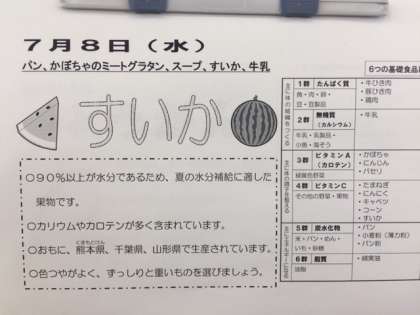 7月8日(水)
パン、かぼちゃのミートグラタン、スープ、すいか、牛乳
すいか
○90%以上が水分であるため、夏の水分補給に適した
果物です。
○カリウムやカロテンが多く含まれています。
○おもに、熊本県、千葉県、山形県で生産されています。
○色つやがよく、ずっしりと重いものを選びましょう。
6つの基礎食品
1群 たんぱく質
魚・肉・卵・
豆・豆製品
・牛ひき肉
・豚ひき肉
・鶏肉
2群 無機質
(カルシウム)
牛乳・乳製品・
小魚・海そう
・牛乳
3群 ビタミンA
(カロテン)
緑黄色野菜
・かぼちゃ
・にんじん
・パセリ
4群 ビタミンC
その他の野菜・果物
・たまねぎ
・にんにく
・キャベツ
・コーン
・すいか
5群 炭水化物
米・パン・めん・
いも・砂糖
・パン
・小麦粉(薄力粉)
・パン粉
6群 脂質
油脂
・綿実油